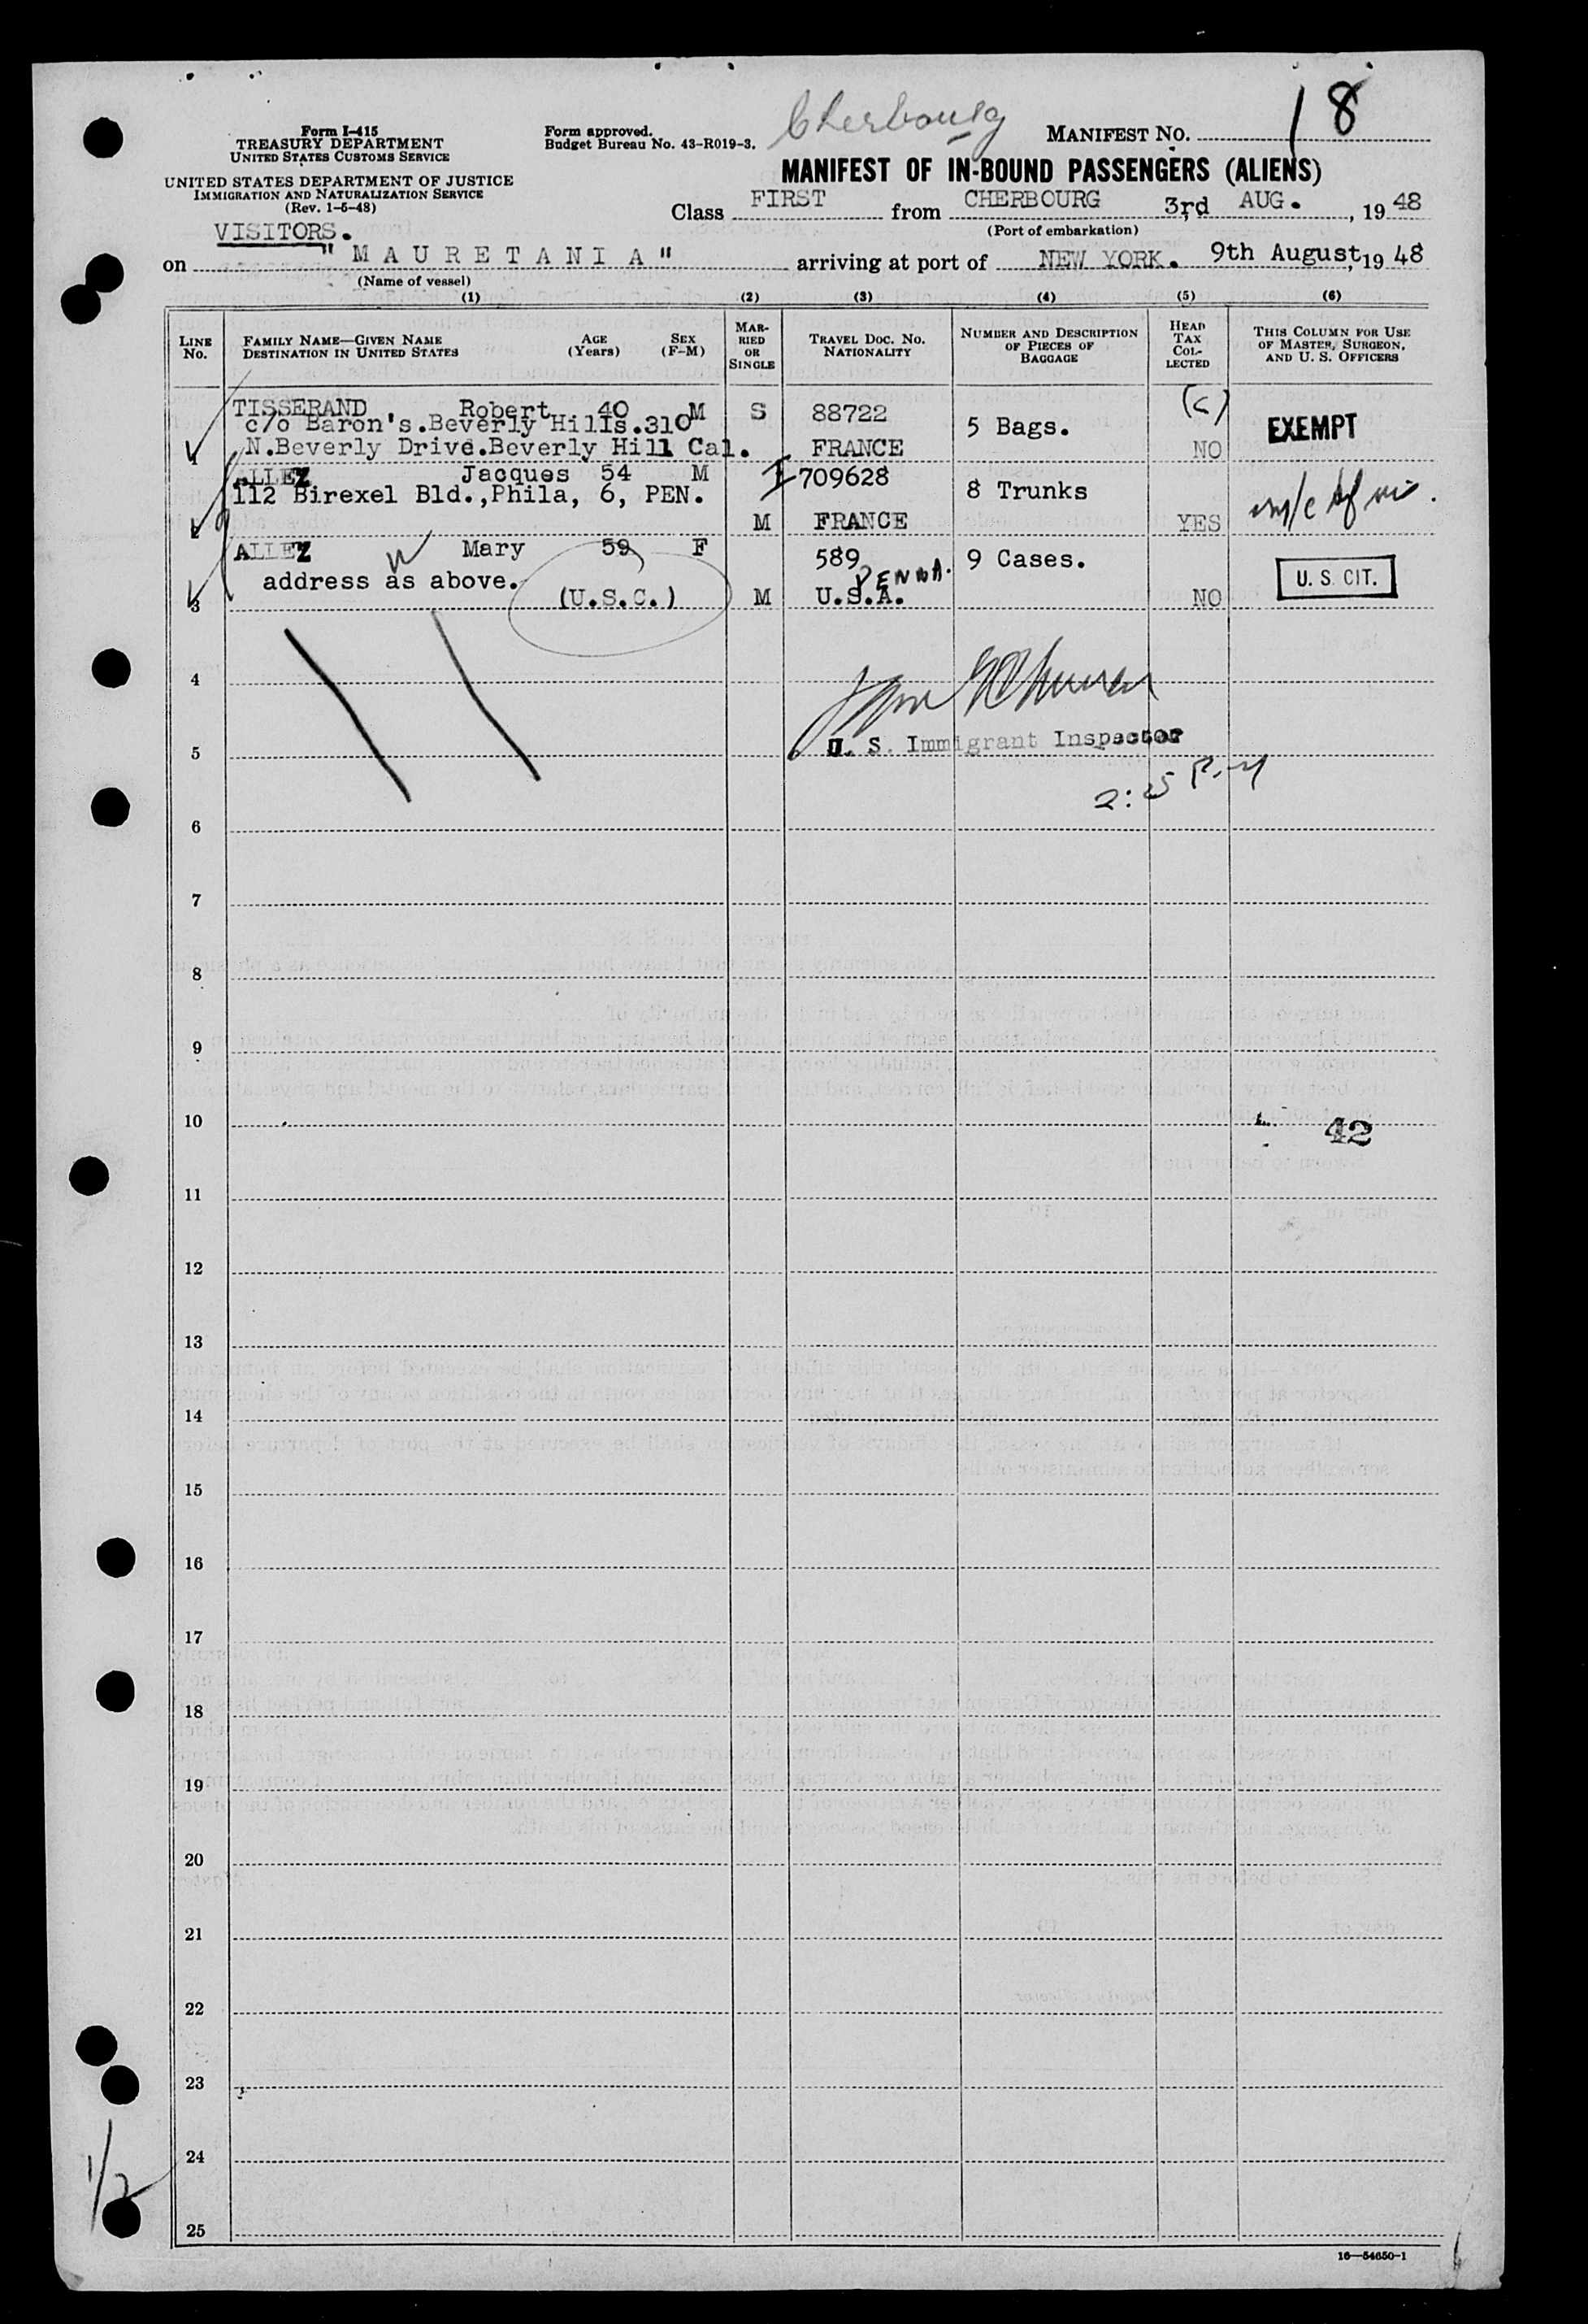 Cherbourg
18
Form I-415
TREASURY DEPARTMENT
UNITED STATES CUSTOMS SERVICE
UNITED STATES DEPARTMENT OF JUSTICE
IMMIGRATION AND NATURALIZATION SERVICE
(Rev. 1-5-48)
Form approved.
Budget Bureau No. 43-R019-3.
MANIFEST NO.
MANIFEST OF IN-BOUND PASSENGERS (ALIENS)
Class FIRST from CHERBOURG 3rd AUG. , 19 48
(Port of embarkation)
VISITORS.
on "MAURETANIA" arriving at port of NEW YORK. 9th August, 19 48
(Name of vessel)
(1) (2) (3) (4) (5) (6)
LINE No.
FAMILY NAME—GIVEN NAME AGE (Years) SEX (F-M)
DESTINATION IN UNITED STATES
MARRIED OR SINGLE
TRAVEL DOC. NO. NATIONALITY
NUMBER AND DESCRIPTION OF PIECES OF BAGGAGE
HEAD TAX COLLECTED
THIS COLUMN FOR USE OF MASTER, SURGEON, AND U. S. OFFICERS
TISSERAND Robert 40 M S 88722 (c)
c/o Baron's.Beverly Hills.310 5 Bags. EXEMPT
1 N.Beverly Drive.Beverly Hill Cal. FRANCE NO
ALLEZ Jacques 54 M I 709628
112 Birexel Bld.,Phila, 6, PEN. 8 Trunks
2 M FRANCE YES
ALLEZ Mary 59 F 589 9 Cases.
address as above. PENNA. U. S. CIT.
3 (U.S.C.) M U.S.A. NO
4
5 U. S. Immigrant Inspector
2:25 P.M
6
7
8
9
10 42
11
12
13
14
15
16
17
18
19
20
21
22
23
24
1/2
25
16—54650-1